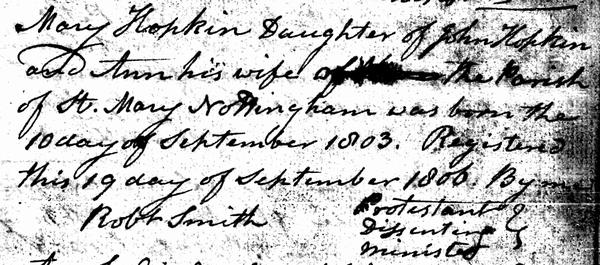 Mary Hopkin Daughter of John Hopkin
and Ann his wife of the Parish
of St. Mary Nottingham was born the
10 day of September 1803. Registered
this 19 day of September 1806. By me
Robt Smith
Protestant
Dissenting
Minister